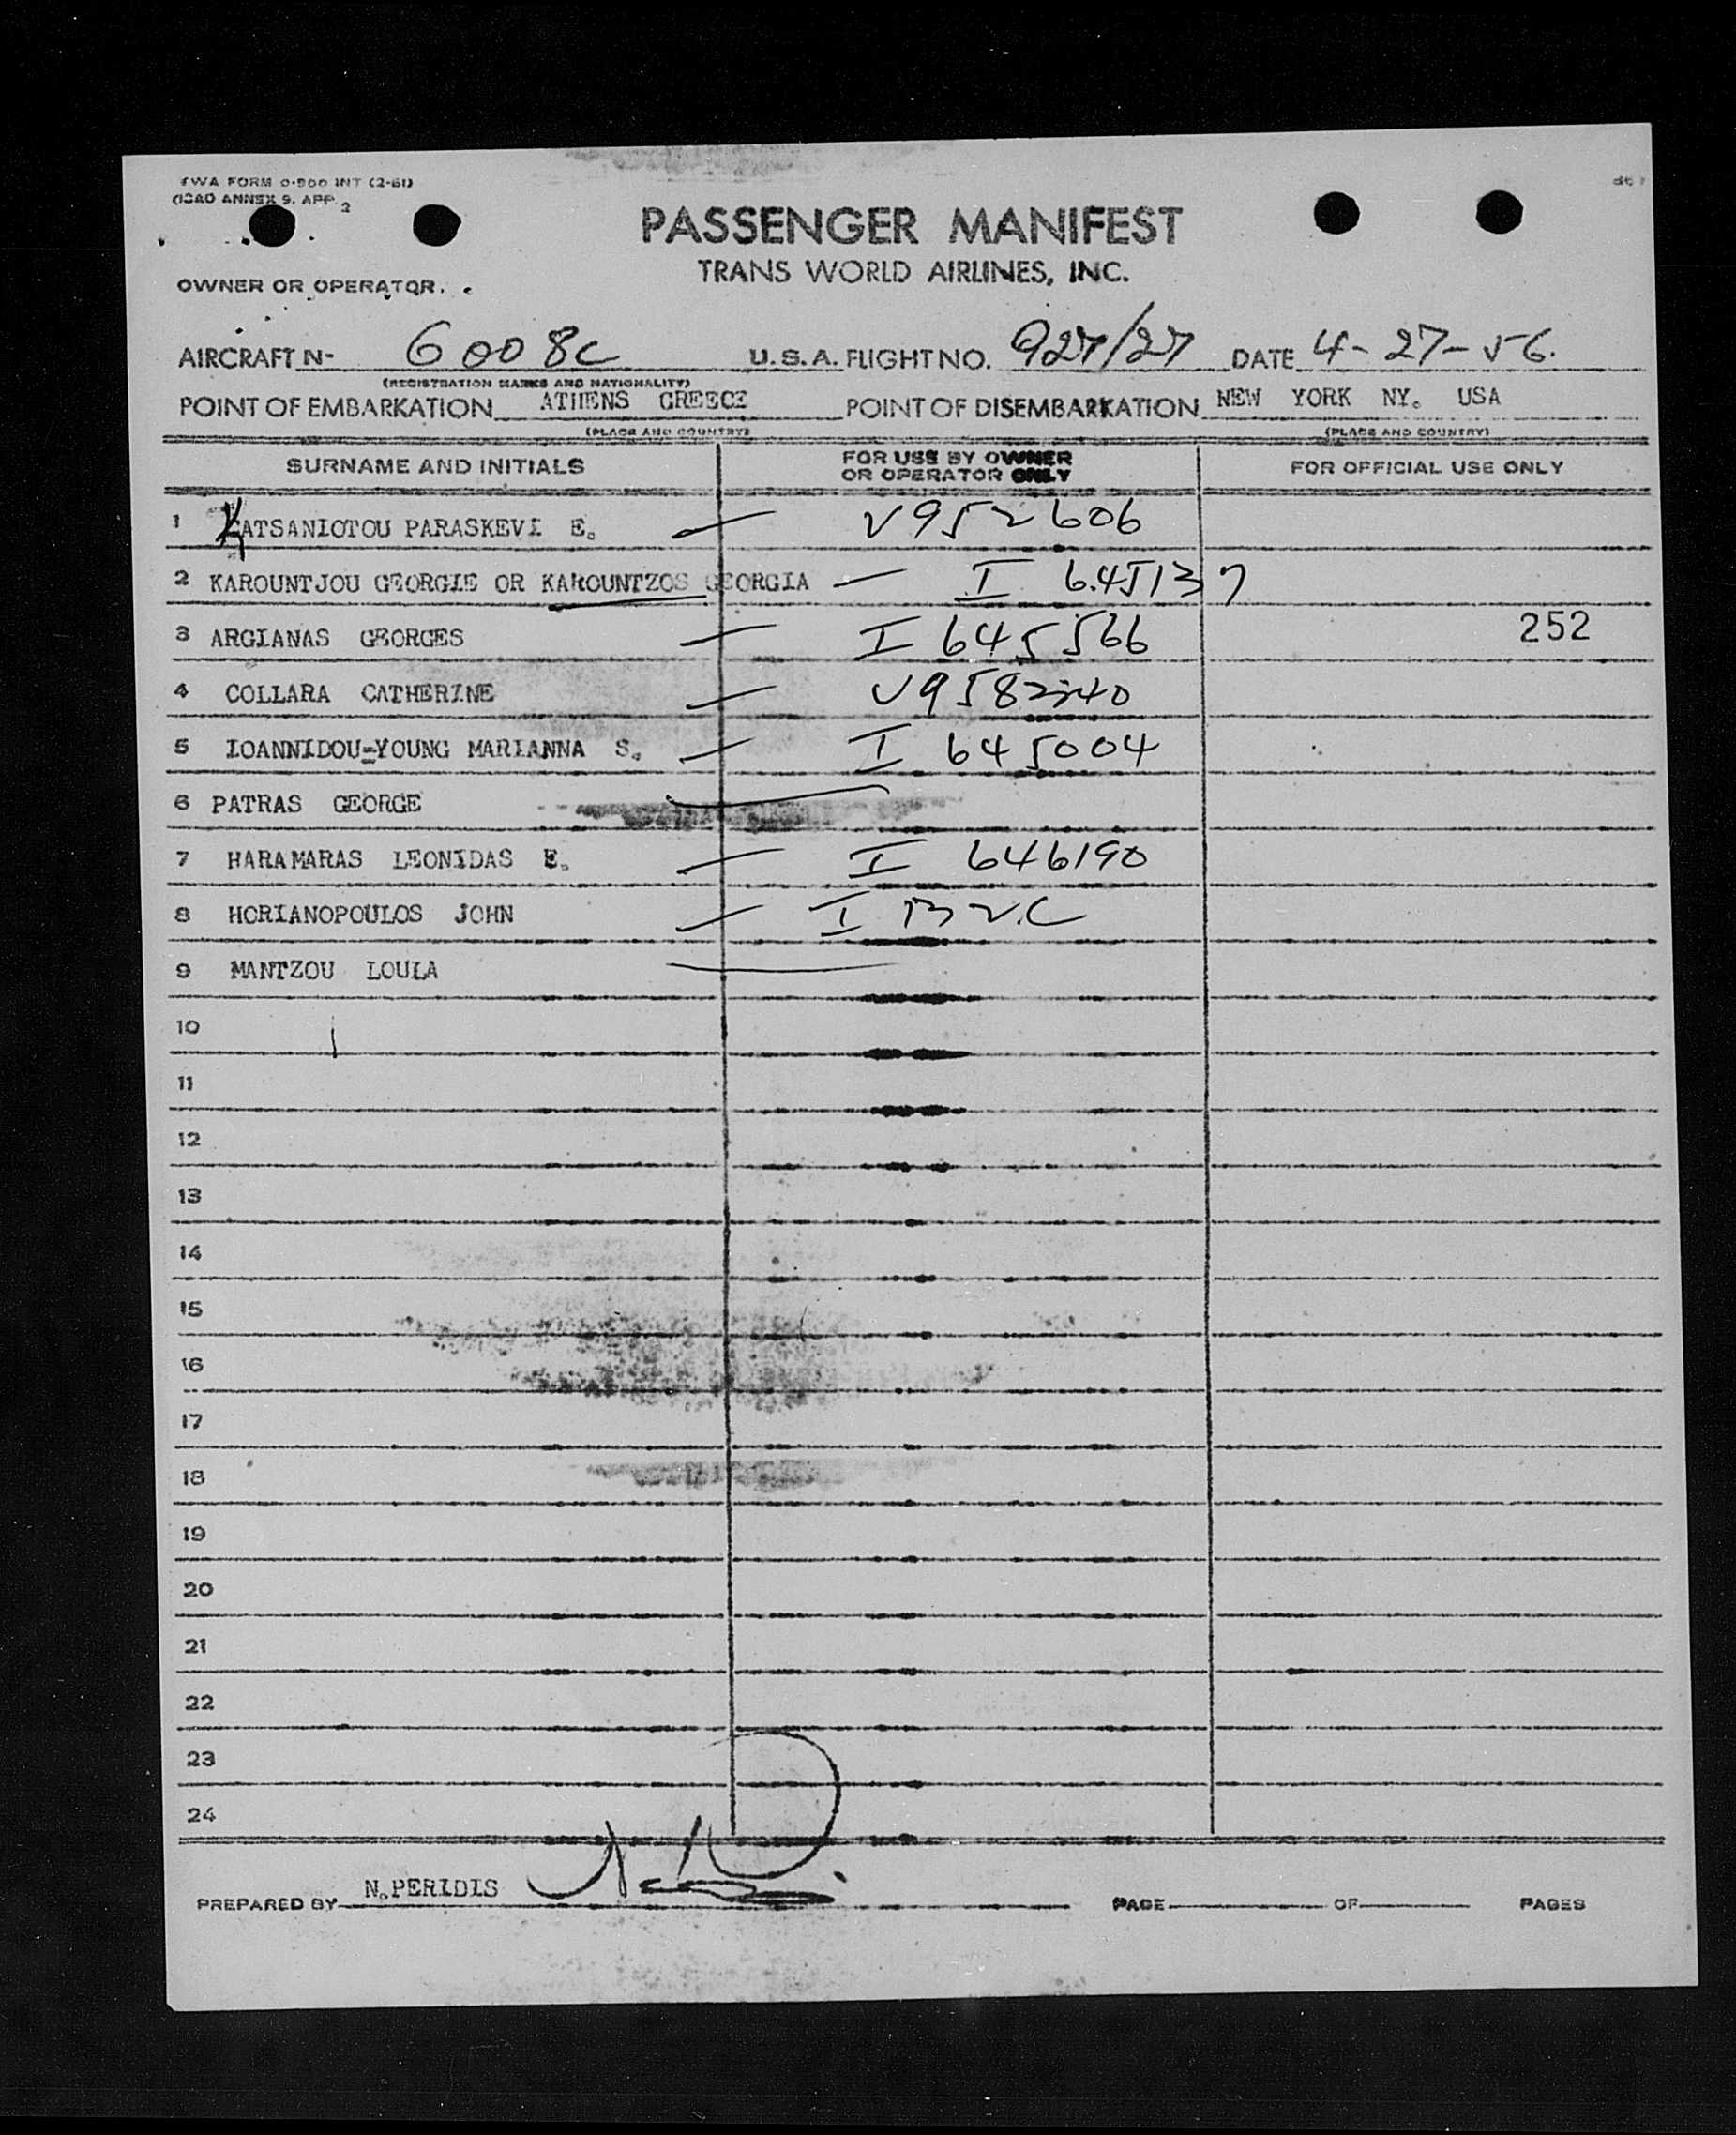 TWA FORM 0-900 INT (2-51)
(ICAO ANNEX 9. APP. 2
PASSENGER MANIFEST
TRANS WORLD AIRLINES, INC.
OWNER OR OPERATOR.
AIRCRAFT N- 6008C U.S.A. FLIGHT NO. 927/27 DATE 4-27-56.
(REGISTRATION MARKS AND NATIONALITY)
POINT OF EMBARKATION ATHENS GREECE POINT OF DISEMBARKATION NEW YORK NY. USA
(PLACE AND COUNTRY) (PLACE AND COUNTRY)
SURNAME AND INITIALS FOR USE BY OWNER OR OPERATOR ONLY FOR OFFICIAL USE ONLY
1 KATSANIOTOU PARASKEVI E. — V952606
2 KAROUNTJOU GEORGIE OR KAROUNTZOS GEORGIA — I 645137
3 ARGIANAS GEORGES — I 645566 252
4 COLLARA CATHERINE —
5 IOANNIDOU-YOUNG MARIANNA S. — I 645004
6 PATRAS GEORGE —
7 HARAMARAS LEONIDAS E. — I 646190
8 HORIANOPOULOS JOHN — I
9 MANTZOU LOULA —
10
11
12
13
14
15
16
17
18
19
20
21
22
23
24
PREPARED BY N.PERIDIS PAGE OF PAGES